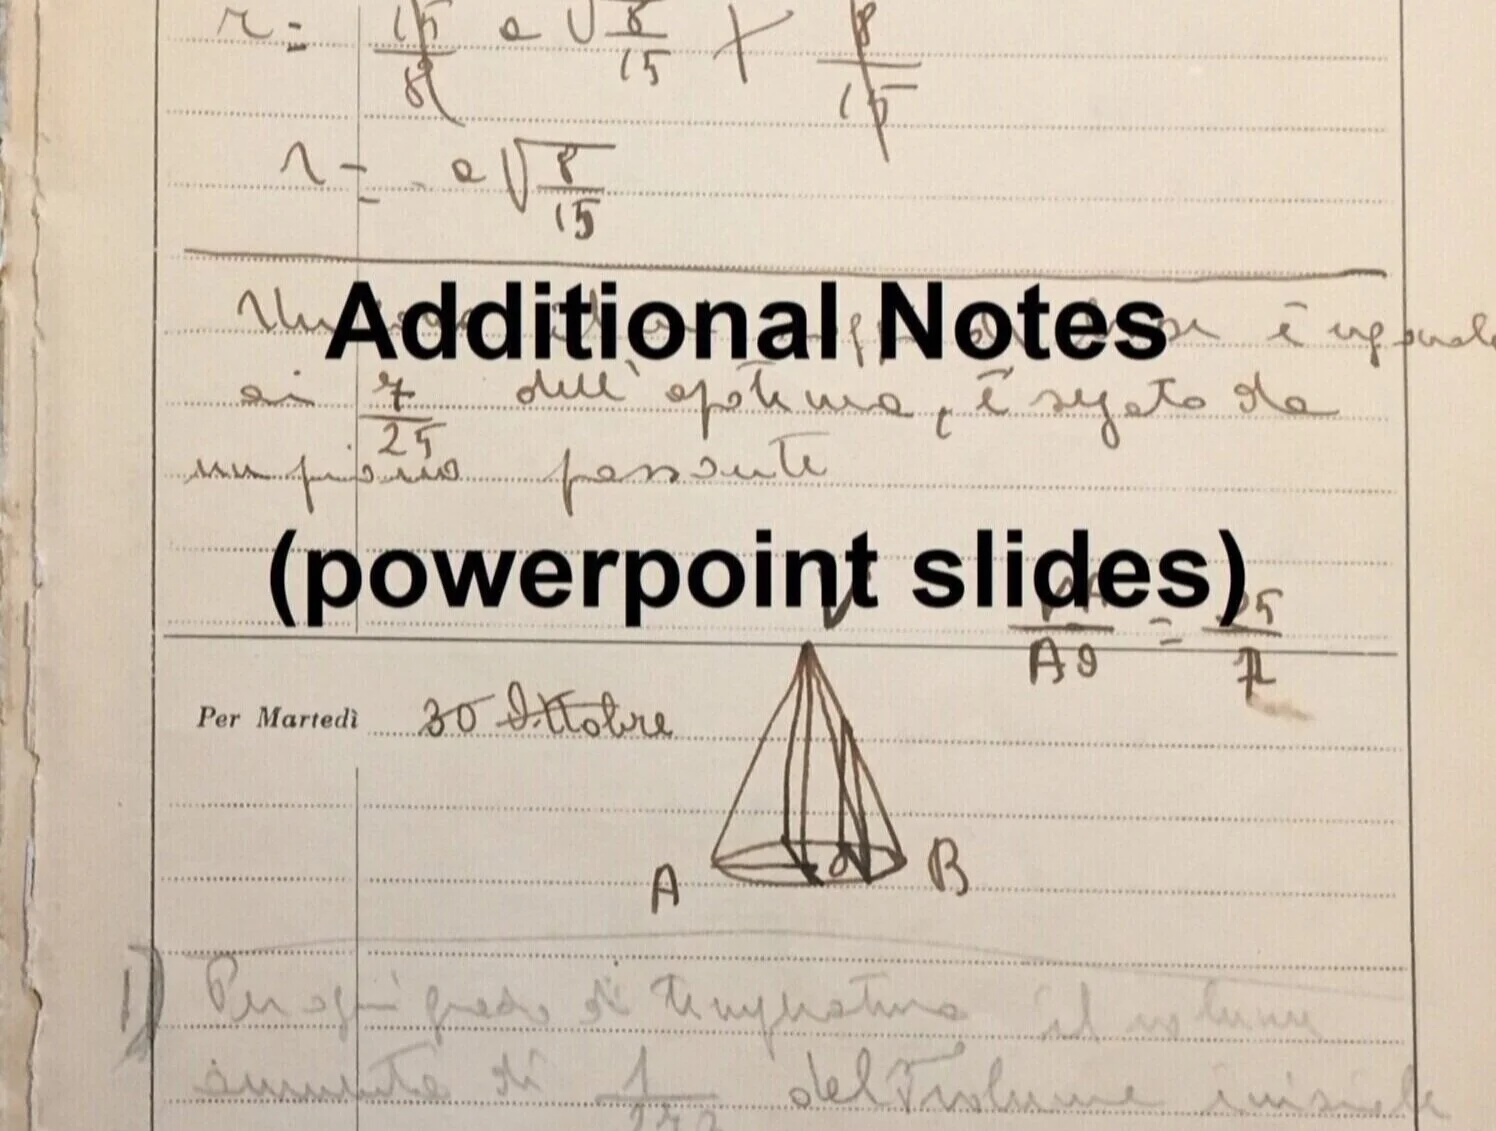 r = 15/8 a √8/15 × 8/15
r = a √8/15
Additional Notes
è uguale
ai 7/25 dell'apotema, è segato da
un piano passante
(powerpoint slides)
V
VA/AO = 25/7
Per Martedì 30 Ottobre
A B
1) Per ogni grado di temperatura il volume
aumenta di 1/273 del volume iniziale